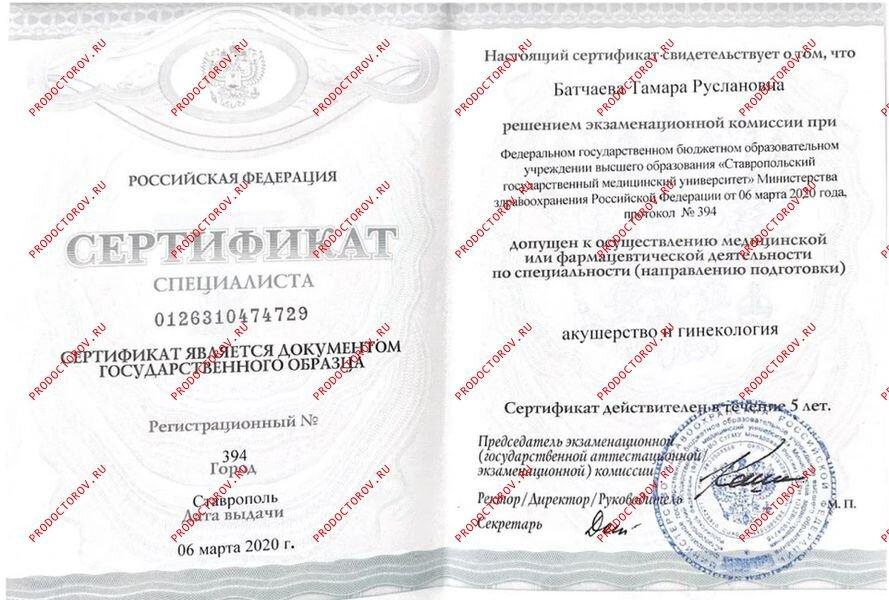 РОССИЙСКАЯ ФЕДЕРАЦИЯ
СЕРТИФИКАТ
СПЕЦИАЛИСТА
0126310474729
СЕРТИФИКАТ ЯВЛЯЕТСЯ ДОКУМЕНТОМ
ГОСУДАРСТВЕННОГО ОБРАЗЦА
Регистрационный №
394
Город
Ставрополь
Дата выдачи
06 марта 2020 г.
Настоящий сертификат свидетельствует о том, что
Батчаева Тамара Руслановна
решением экзаменационной комиссии при
Федеральном государственном бюджетном образовательном
учреждении высшего образования «Ставропольский
государственный медицинский университет» Министерства
здравоохранения Российской Федерации от 06 марта 2020 года,
протокол № 394
допущен к осуществлению медицинской
или фармацевтической деятельности
по специальности (направлению подготовки)
акушерство и гинекология
Сертификат действителен в течение 5 лет.
Председатель экзаменационной
(государственной аттестационной/
экзаменационной) комиссии
Ректор/Директор/Руководитель
М. П.
Секретарь
PRODOCTOROV.RU